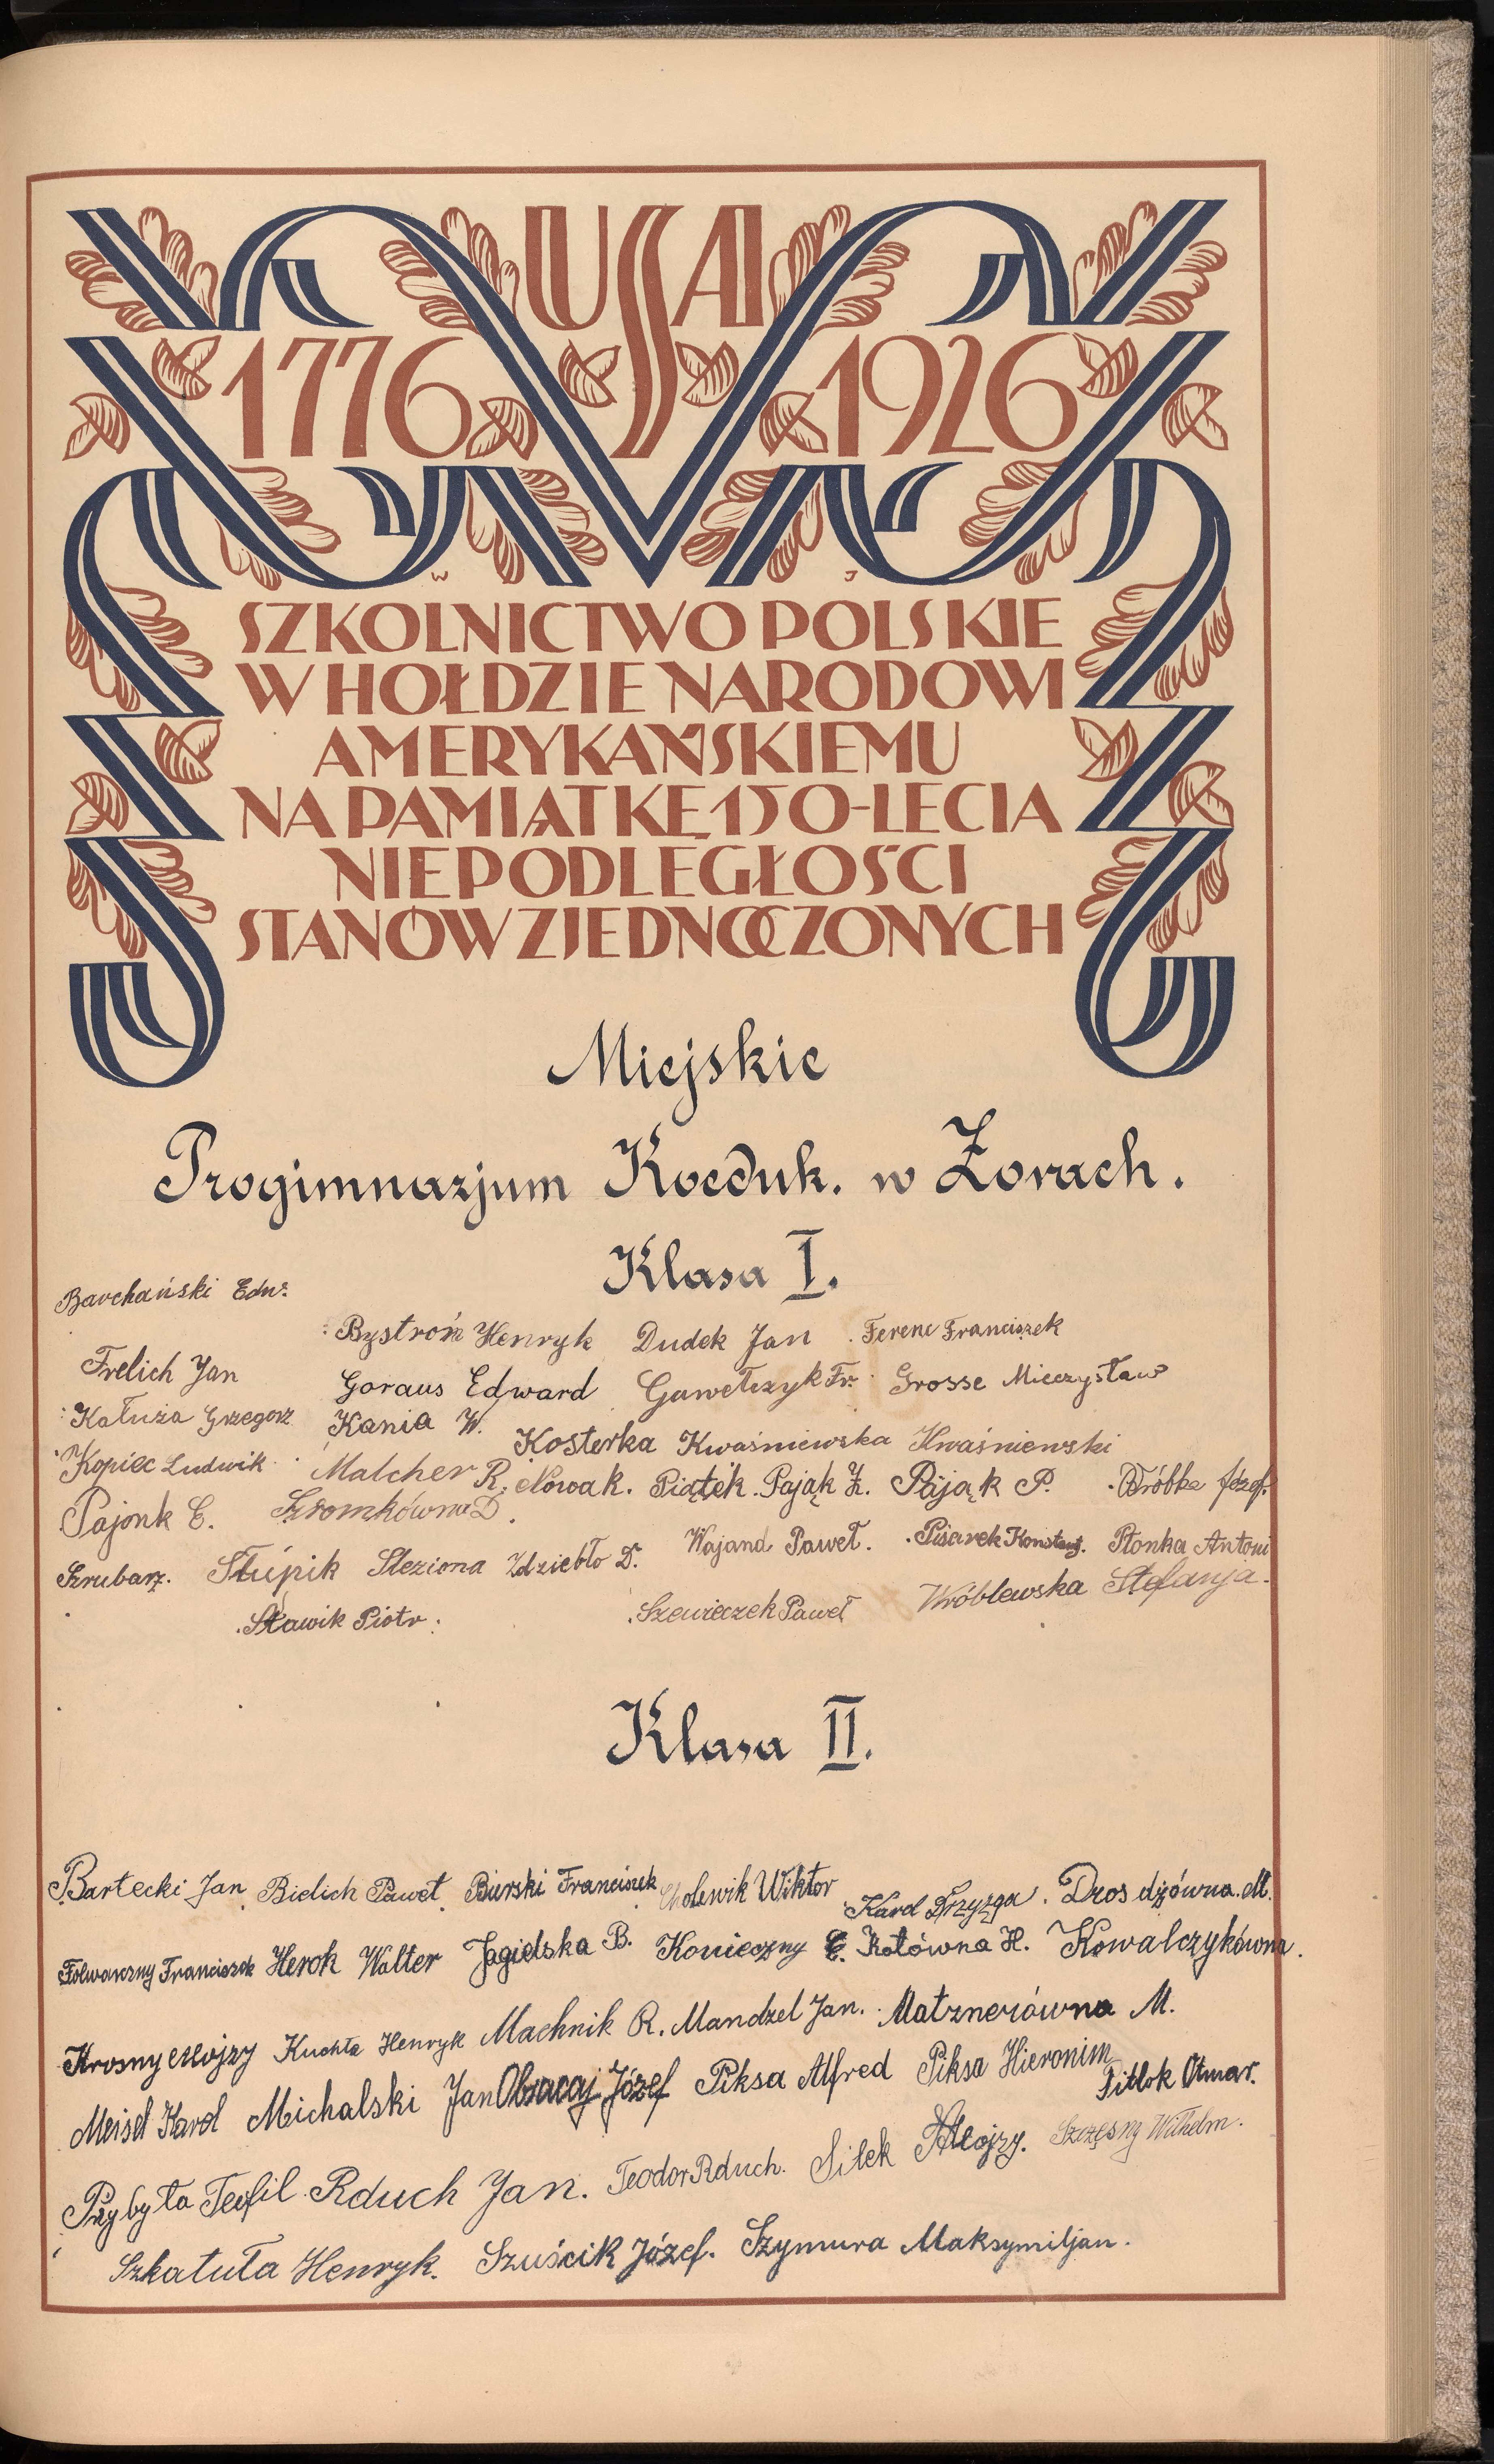 USA
1776 1926
W J
SZKOLNICTWO POLSKIE
W HOŁDZIE NARODOWI
AMERYKAŃSKIEMU
NA PAMIĄTKĘ 150-LECIA
NIEPODLEGŁOŚCI
STANÓW ZJEDNOCZONYCH
Miejskie
Progimnazjum Koeduk. w Żorach.
Klasa I.
Barchański Edw.
Bystroń Henryk Dudek Jan Ferenc Franciszek
Frelich Jan Goraus Edward Gawełczyk Fr. Grosse Mieczysław
Kałuża Grzegorz Kania W. Kosterka Kwaśniewska Kwaśniewski
Kopiec Ludwik Malcher R. Nowak. Piątek. Pająk Z. Pająk P. Józef.
Pajonk E. Szromkówna D. Wajand Paweł. Pisarek Konstant. Płonka Antoni
Szrubarz. Słupik Sleziona Zdziebło D.
Sławik Piotr. Szewieczek Paweł Wróblewska Stefanja.
Klasa II.
Bartecki Jan Bielich Paweł Bierski Franciszek Cholewik Wiktor Karol Drzyzga. Drosdzówna. M.
Folwarczny Franciszek Herok Walter Jagielska B. Konieczny E. Kotówna H. Kowalczykówna.
Krosny Alojzy Kuchta Henryk Machnik R. Mandzel Jan. Matznerówna M.
Meisel Karol Michalski Jan Obracaj Józef Piksa Alfred Piksa Hieronim Pitlok Otmar.
Przybyła Teofil Rduch Jan. Teodor Rduch. Siłek Alojzy. Szczęsny Wilhelm.
Szkatuła Henryk. Szuścik Józef. Szymura Maksymiljan.